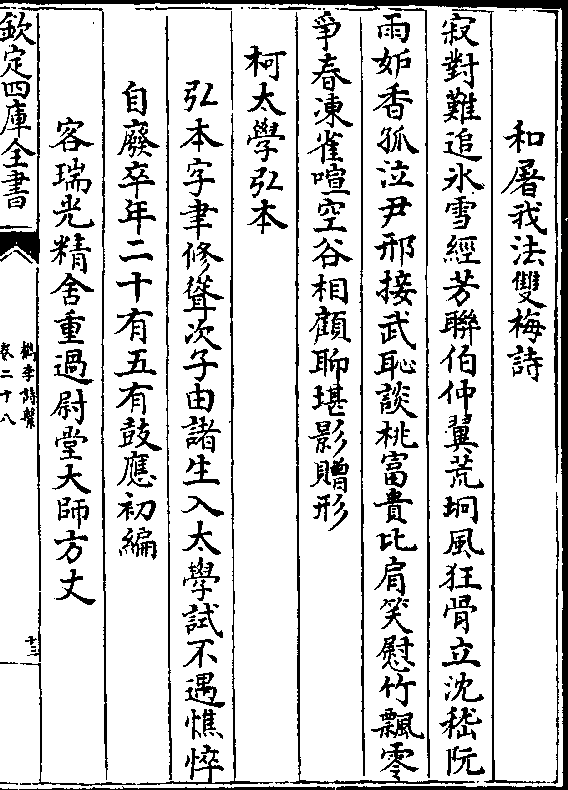 和屠我法雙梅詩
寂對難追氷雪經芳聯伯仲翼荒坰風狂骨立沈嵇阮
雨妬香孤泣尹邢接武恥談桃富貴比肩笑慰竹飄零
爭春凍雀喧空谷相顧聊堪影贈形
柯太學弘本
弘本字聿修聳次子由諸生入太學試不遇憔悴
自廢卒年二十有五有鼓應初編
客瑞光精舍重過尉堂大師方丈
欽定四庫全書
檇李詩繫
卷二十八
十三